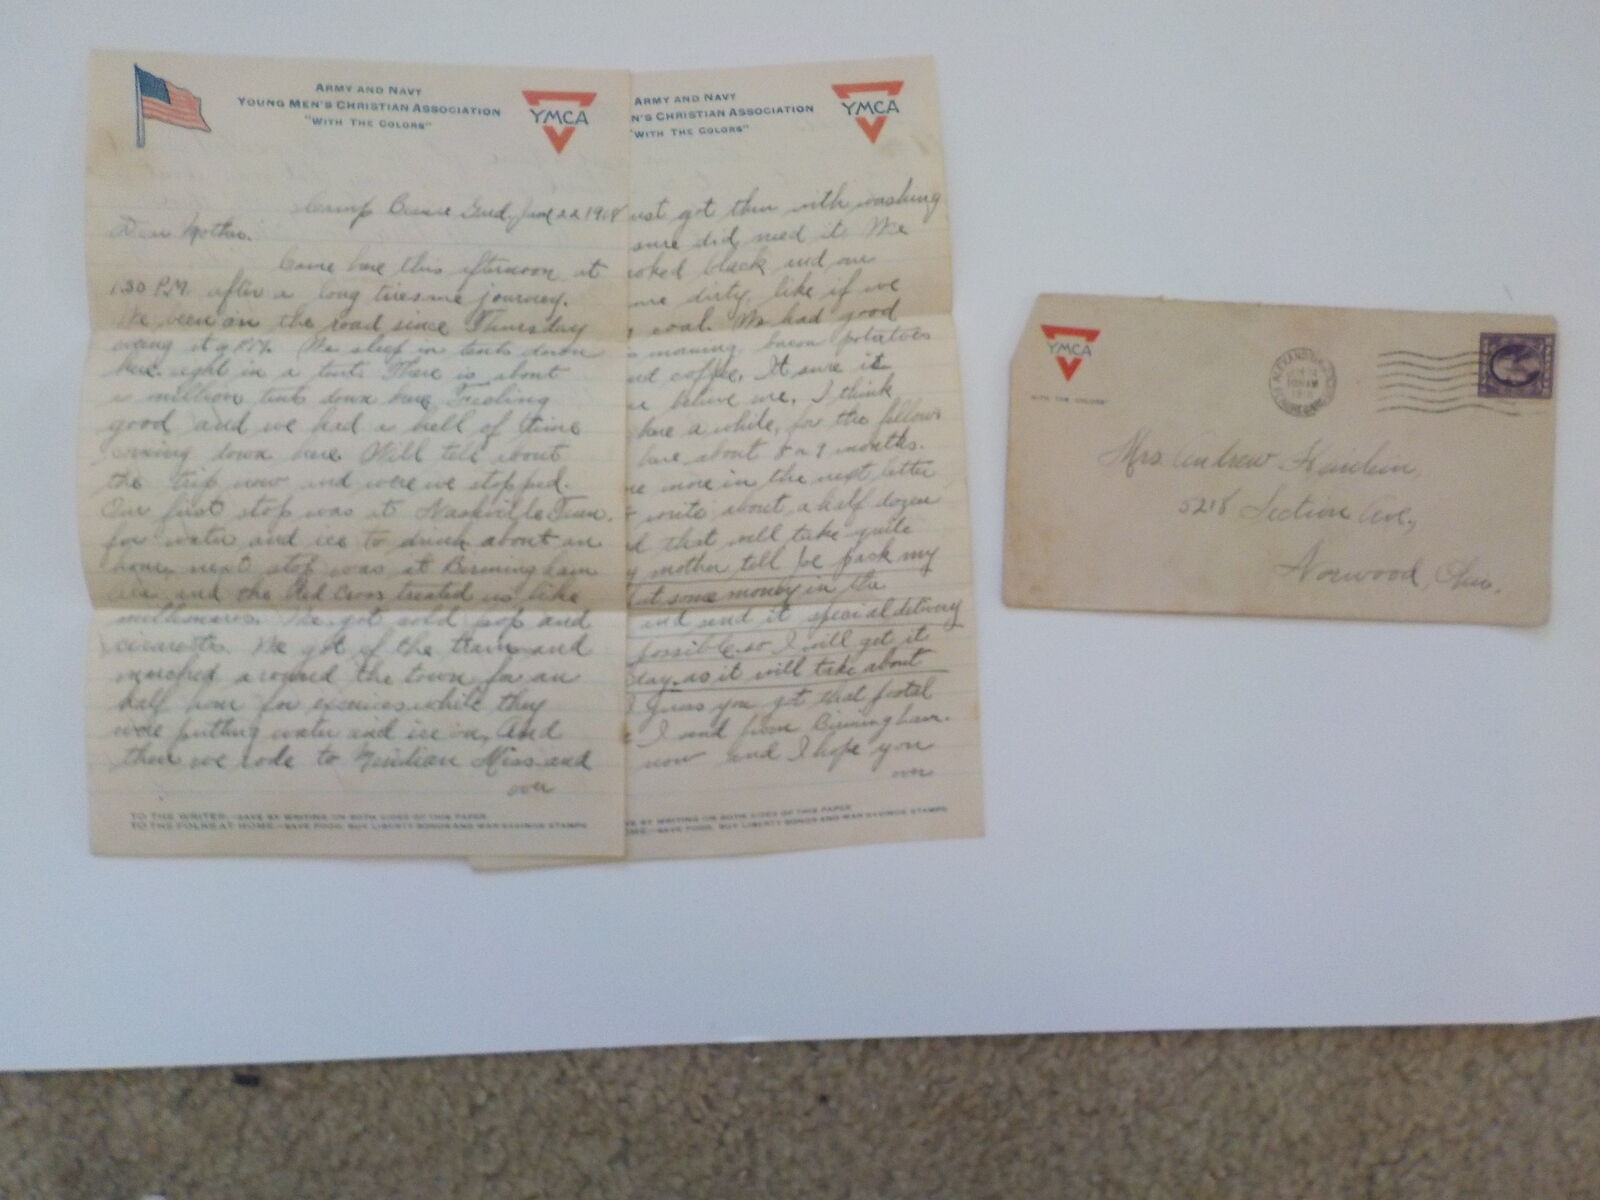 ARMY AND NAVY
YOUNG MEN'S CHRISTIAN ASSOCIATION
"WITH THE COLORS"
YMCA
Camp June 22 1918
Dear Mother.
Came here this afternoon at
1.30 P.M. after a long tiresome journey.
We been on the road since Thursday
evening at 9 P.M. We sleep in tents down
here. eight in a tent. There is about
a million tents down here Feeling
good and we had a hell of time
coming down here Will tell about
the trip now and were we stopped.
Our first stop was at Nashville Tenn.
for water and ice to drink about an
hour, next stop was at Birmingham
Ala. and the Red Cross treated us like
millionaires. We got cold pop and
We got of the train and
marched around the town for an
half hour for while they
were putting water and ice on, And
then we rode to Miss and
over
TO THE WRITER:—SAVE BY WRITING ON BOTH SIDES OF THIS PAPER
TO THE FOLKS AT HOME:—SAVE FOOD, BUY LIBERTY BONDS AND WAR SAVINGS STAMPS
ARMY AND NAVY
N'S CHRISTIAN ASSOCIATION
"WITH THE COLORS"
YMCA
ust got thru with washing
sure did need it. We
ooked black and our
dirty, like if we
coal. We had good
morning, bacon potatoes
nd coffee. It sure is
believe me. I think
here a while, for the fellows
here about 8 or 9 months.
more in the next letter
write about a half dozen
d that will take quite
mother tell Joe pack my
ut some money in the
and send it special delivery
possible so I will get it
day, as it will take about
Guess you got that postal
I send from Birmingham.
now and I hope you
over
VE BY WRITING ON BOTH SIDES OF THIS PAPER
OME:—SAVE FOOD, BUY LIBERTY BONDS AND WAR SAVINGS STAMPS
YMCA
"WITH THE COLORS"
ALEXANDRIA
Mrs. Andrew
5218 Section Ave.,
Norwood, Ohio.